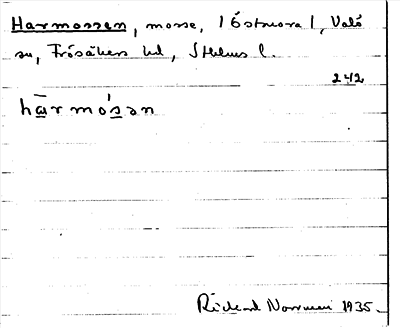 Harmossen, mosse, 1 Östmora 1, Valö
sn, Frösåkers hd, Sthlms l.
242
hārmósən
Rickard Norrman 1935.